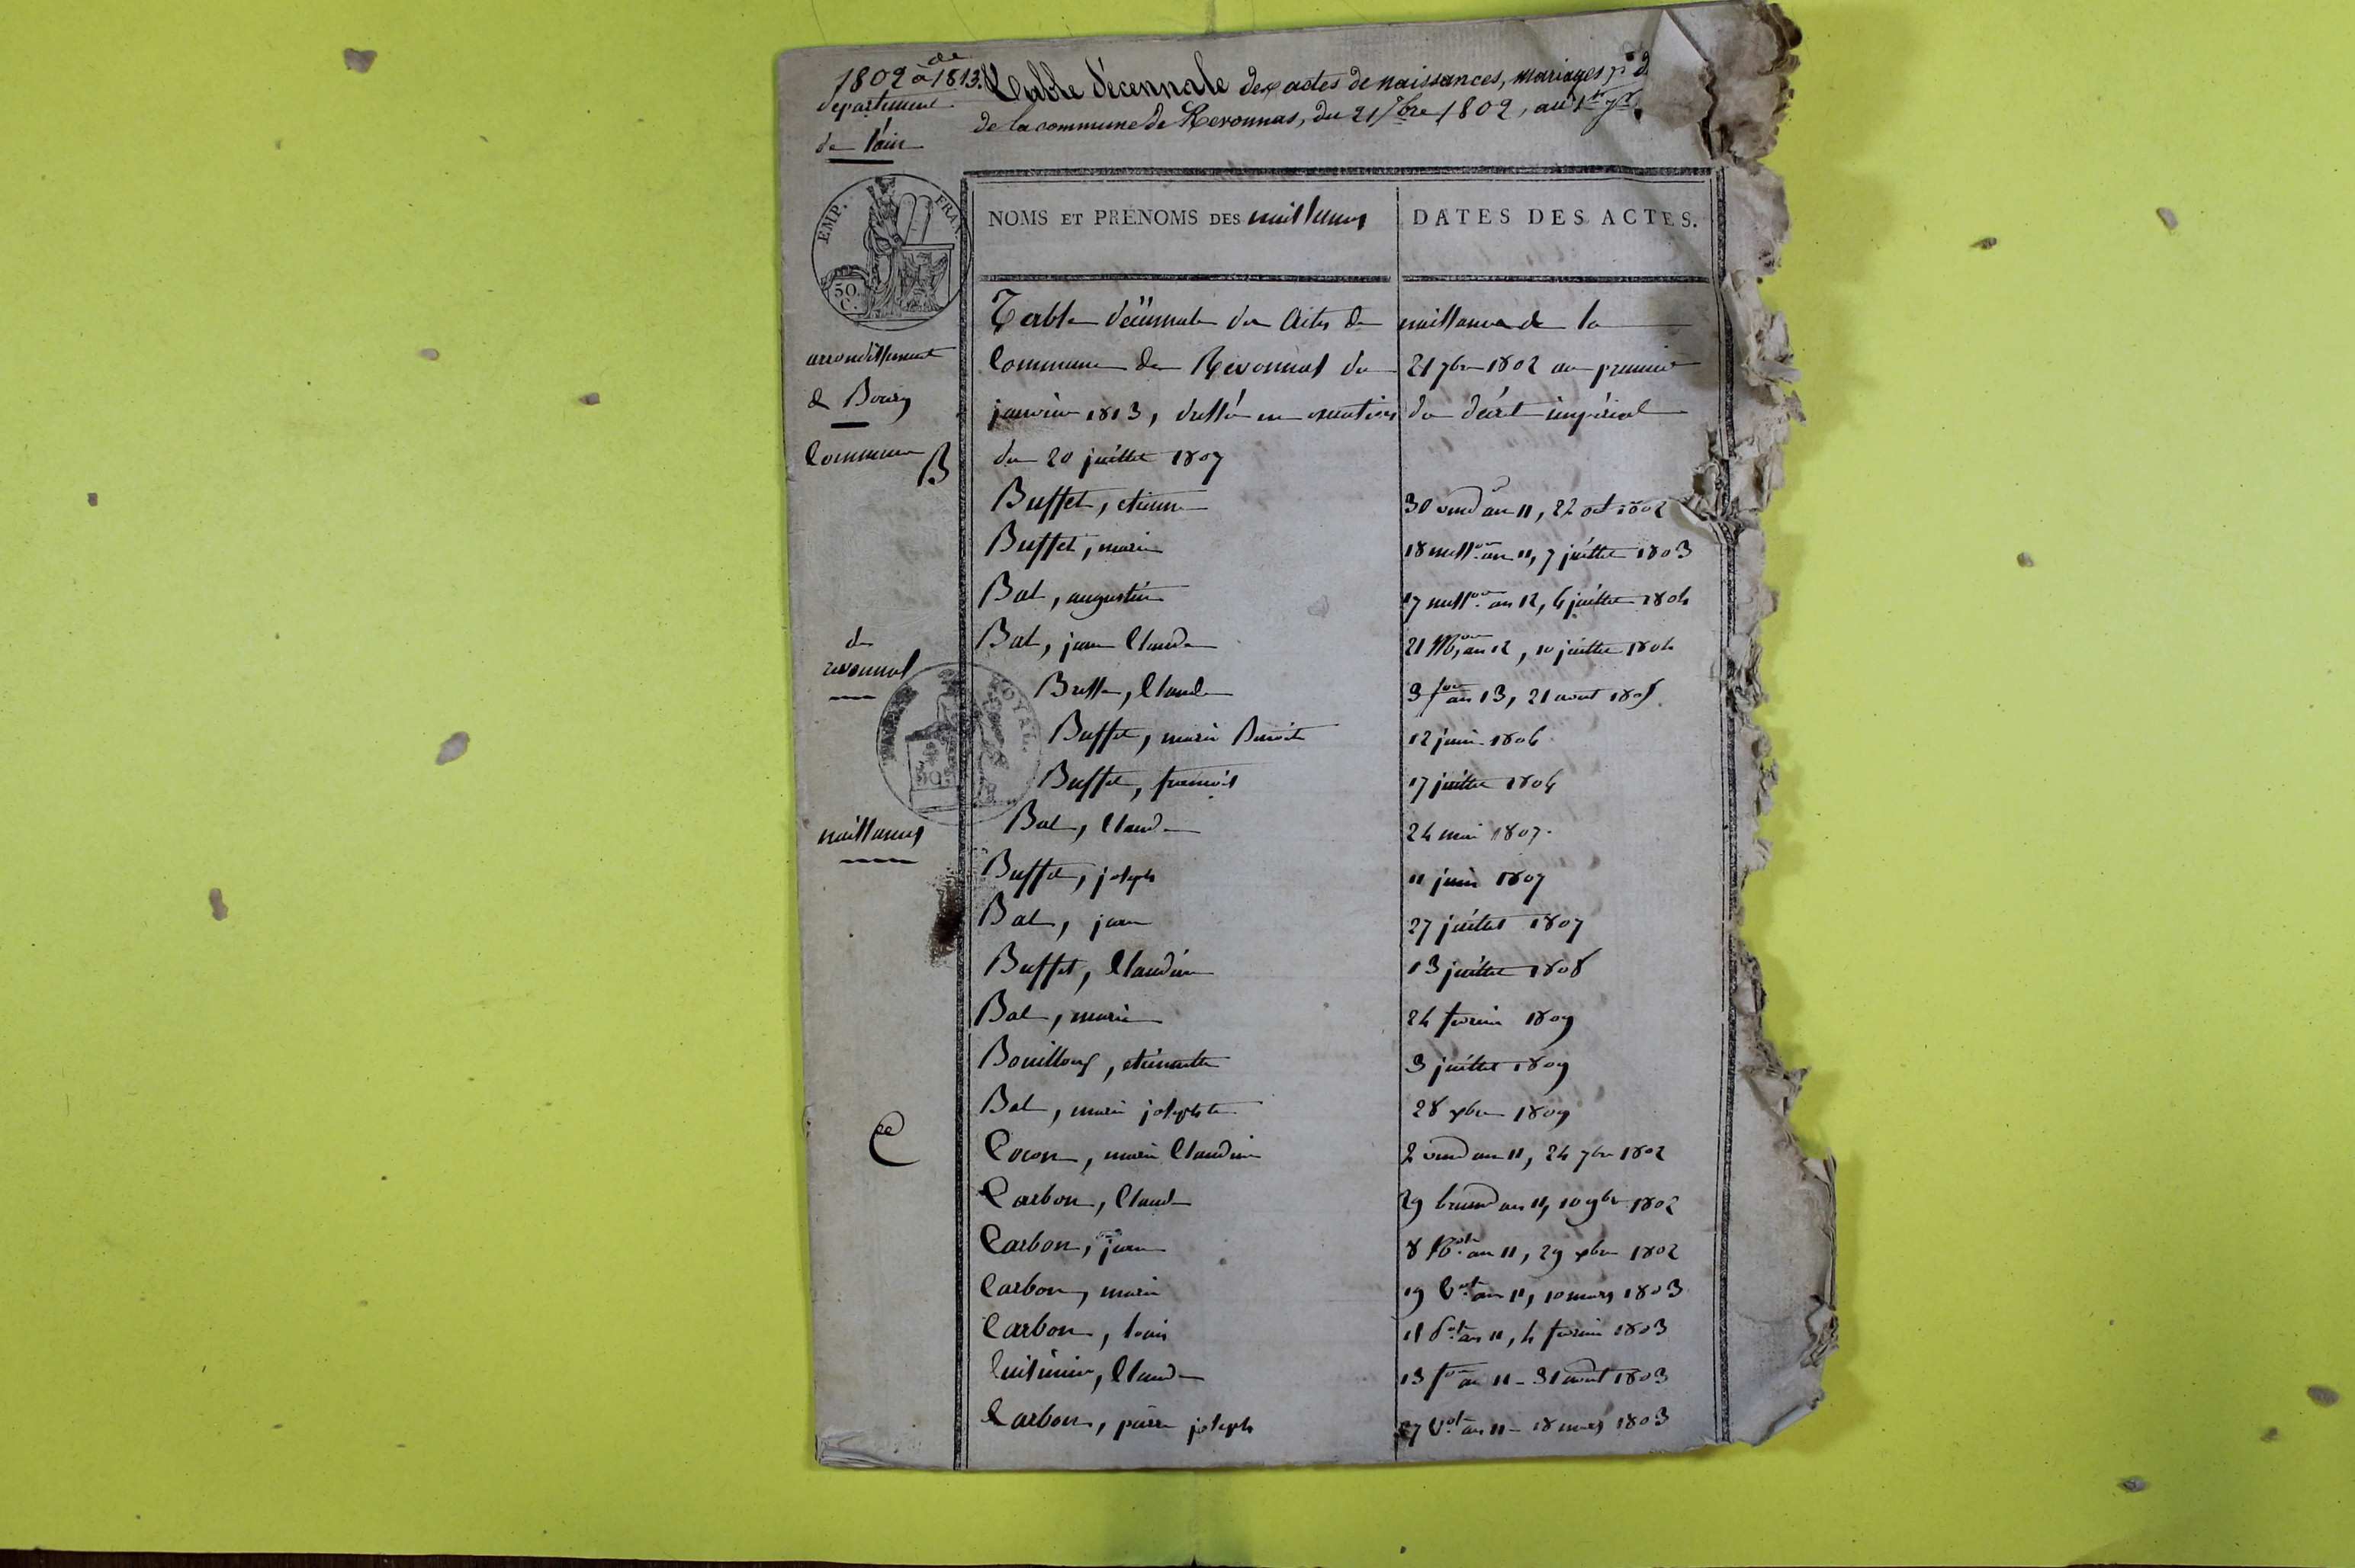 1802 à 1813. Table décennale des actes de naissances, mariages
de la commune de Revonnas, du 21 7bre 1802, au 1er
departement
de l'ain
NOMS ET PRÉNOMS DES naissances
DATES DES ACTES.
EMP. FRA.
50 C.
Table décennale des Actes de naissance de la
arrondissement
Commune de Revonnas du 21 7bre 1802 au premier
de Bourg
janvier 1813, dressée en execution du décret impérial
Commune
du 20 juillet 1807
B
Buffet, etienne 30 vend an 11, 22 oct 1802
Buffet, marie 18 messor an 11, 7 juillet 1803
Bat, augustin 17 messor an 12, 6 juillet 1804
de
Bat, jean Claude 21 Mor, an 12, 10 juillet 1804
revonnas
Bresse, Claude 3 for an 13, 21 aout 1805
ROYAL
50
Buffet, marie Benoite 12 juin 1806
Buffet, francois 17 juillet 1806
naissances
Bat, Claude 24 mai 1807.
Buffet, joseph 11 juin 1807
Bat, jean 27 juillet 1807
Buffet, Claudine 13 juillet 1808
Bat, marie 24 fevrier 1809
Bouilloux, etiennette 3 juillet 1809
Bat, marie josephte 28 xbre 1809
C
Cocon, marie Claudine 2 vend an 11, 24 7bre 1802
Carbon, Claude 29 brum an 11, 10 9bre 1802
Carbon, jean 8 an 11, 29 xbre 1802
Carbon, marie 19 Vot an 11, 10 mars 1803
Carbon, louis an 11, 4 fevrier 1803
Claude 13 for an 11 - 31 aout 1803
Carbon, pierre joseph 27 Vot an 11 - 18 mars 1803